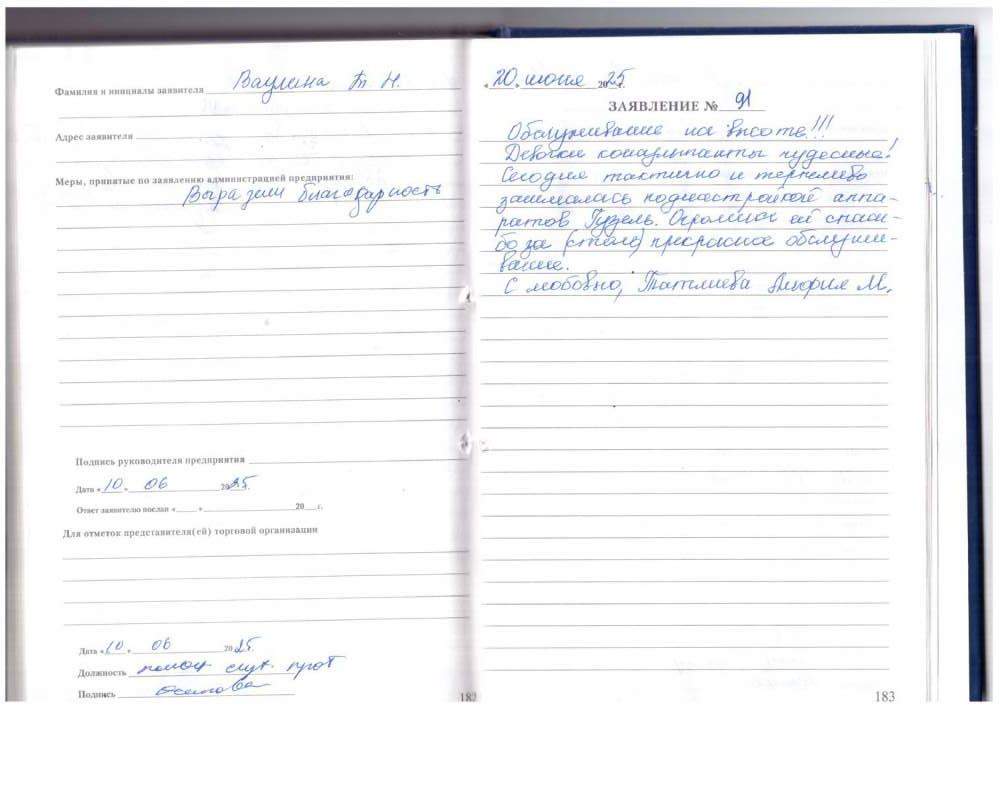 Фамилия и инициалы заявителя Ваулина Т Н.
Адрес заявителя
Меры, принятые по заявлению администрацией предприятия:
Выразили благодарность
Подпись руководителя предприятия
Дата «10» 06 2025г.
Ответ заявителю послан «___» 20__г.
Для отметок представителя(ей) торговой организации
Дата «10» 06 2025г.
Должность слух. прот
Подпись
182
«20» июня 2025г.
ЗАЯВЛЕНИЕ № 91
Обслуживание на высоте!!!
Девочки консультанты чудесные!
Сегодня тактично и терпеливо
занималась поднастройкой аппа-
ратов Гузель. Огромное ей спаси-
бо за (столь) прекрасное обслужи-
вание.
С любовью, М.
183